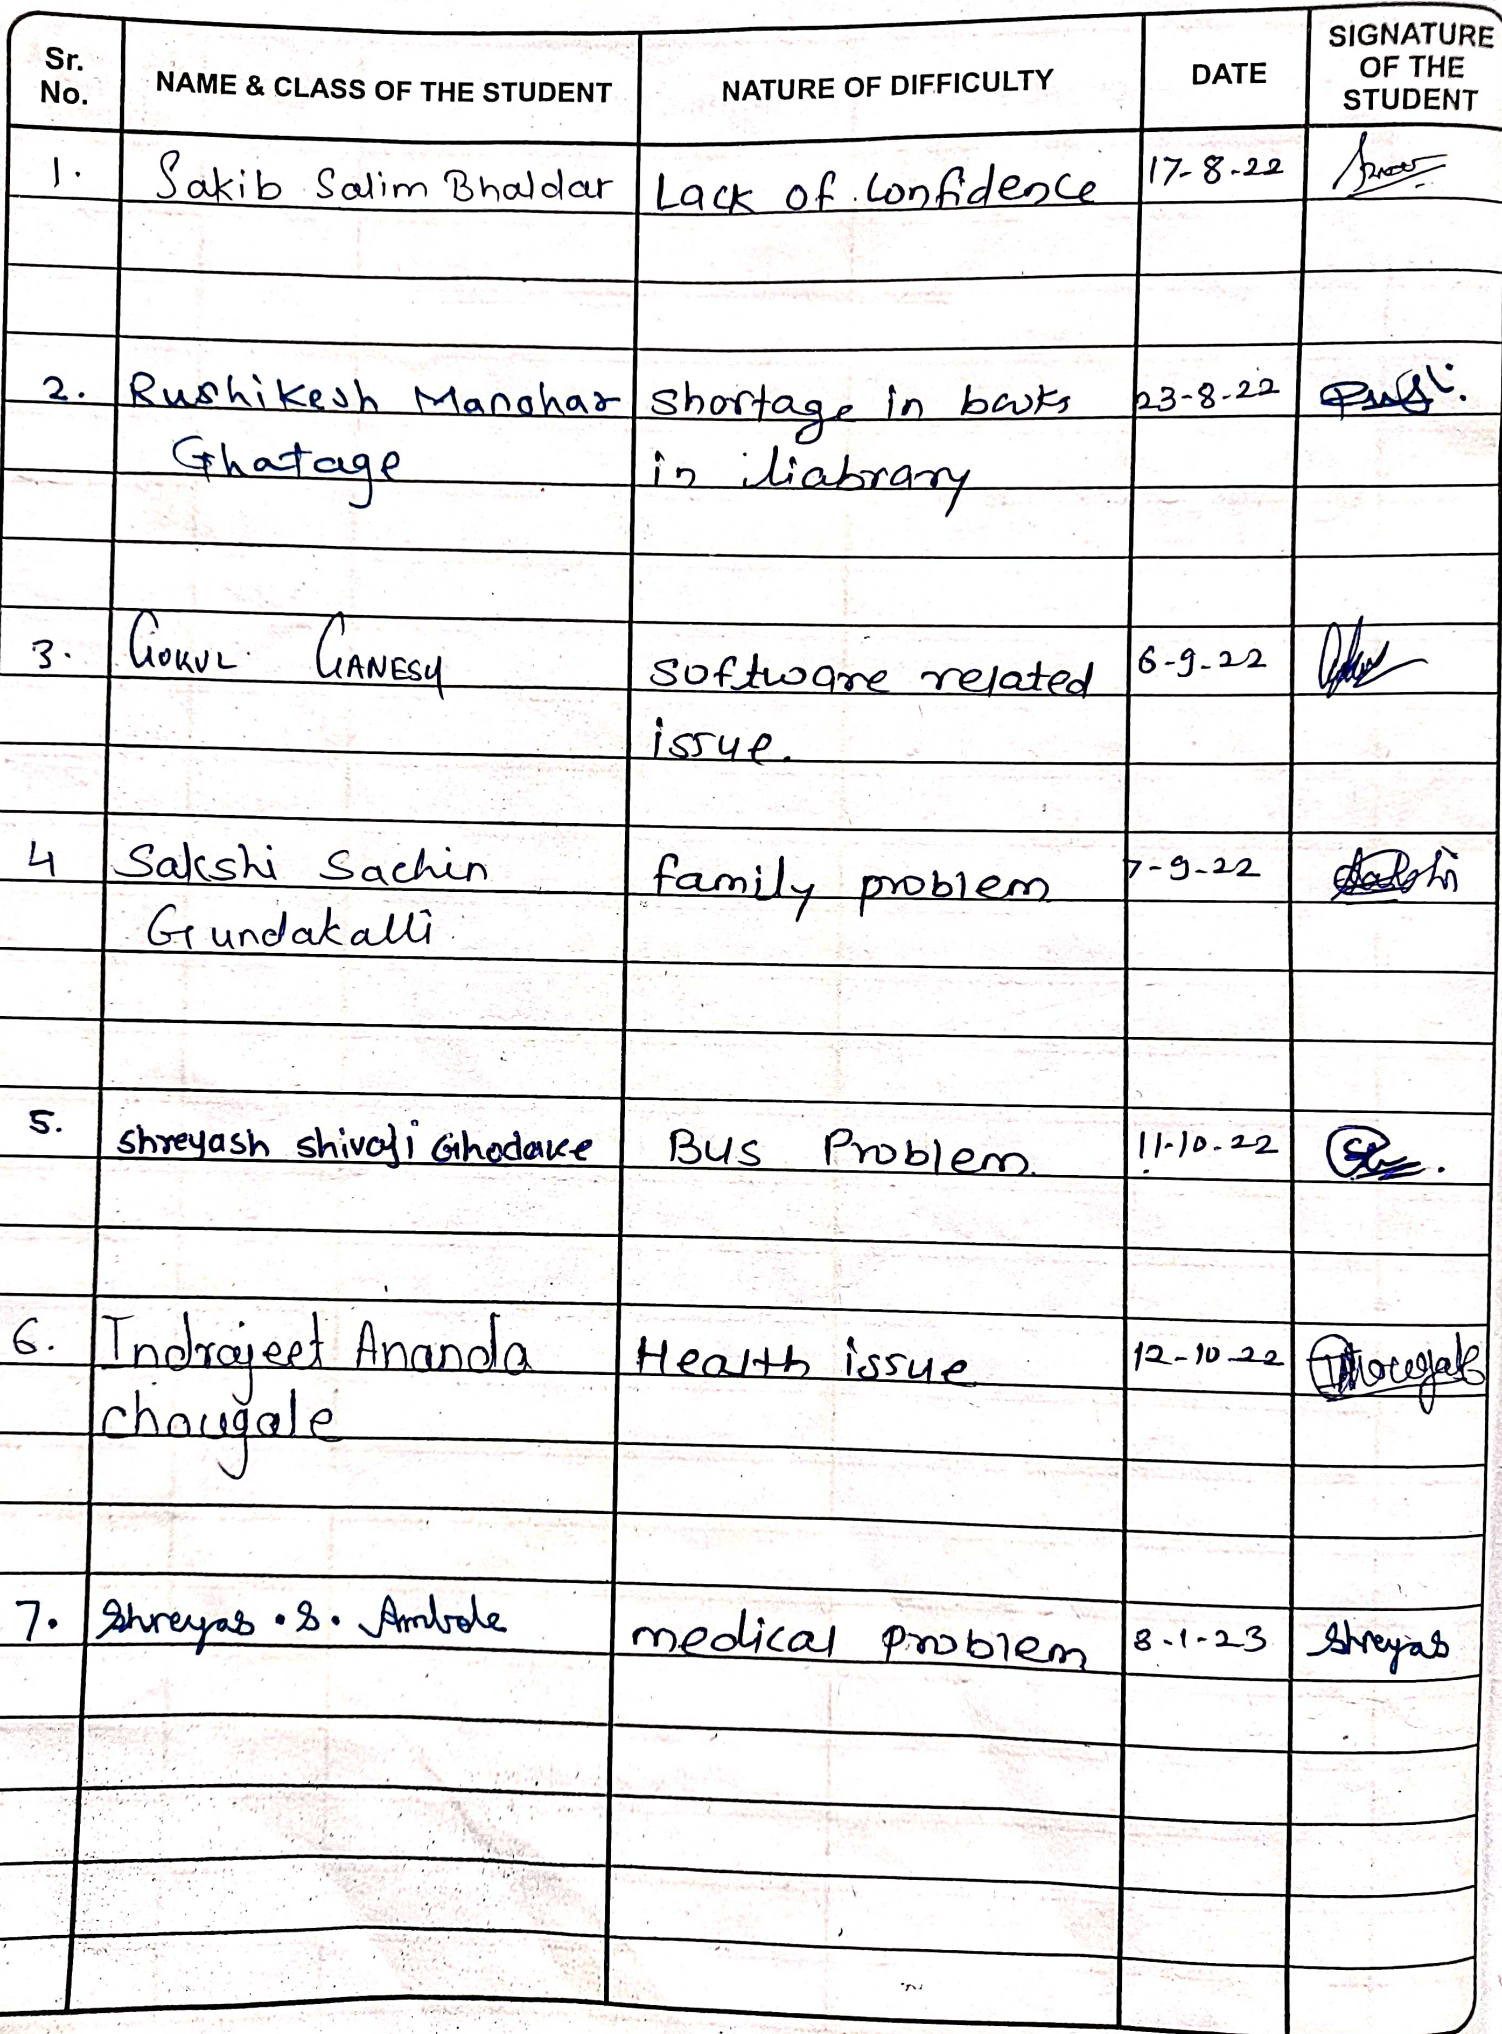 Sr. No. NAME & CLASS OF THE STUDENT NATURE OF DIFFICULTY DATE SIGNATURE OF THE STUDENT
1. Sakib Salim Bhaldar Lack of confidence 17-8-22
2. Rushikesh Manohar shortage in books 23-8-22
Ghatage in liabrary
3. GOKUL GANESH software related 6-9-22
issue.
4 Sakshi Sachin family problem 7-9-22 Sakshi
Gundakalli
5. shreyash shivaji Ghodake Bus Problem 11-10-22
6. Indrajeet Ananda Health issue 12-10-22
chougale
7. Shreyas .S. Ambole medical problem 8-1-23 Shreyas